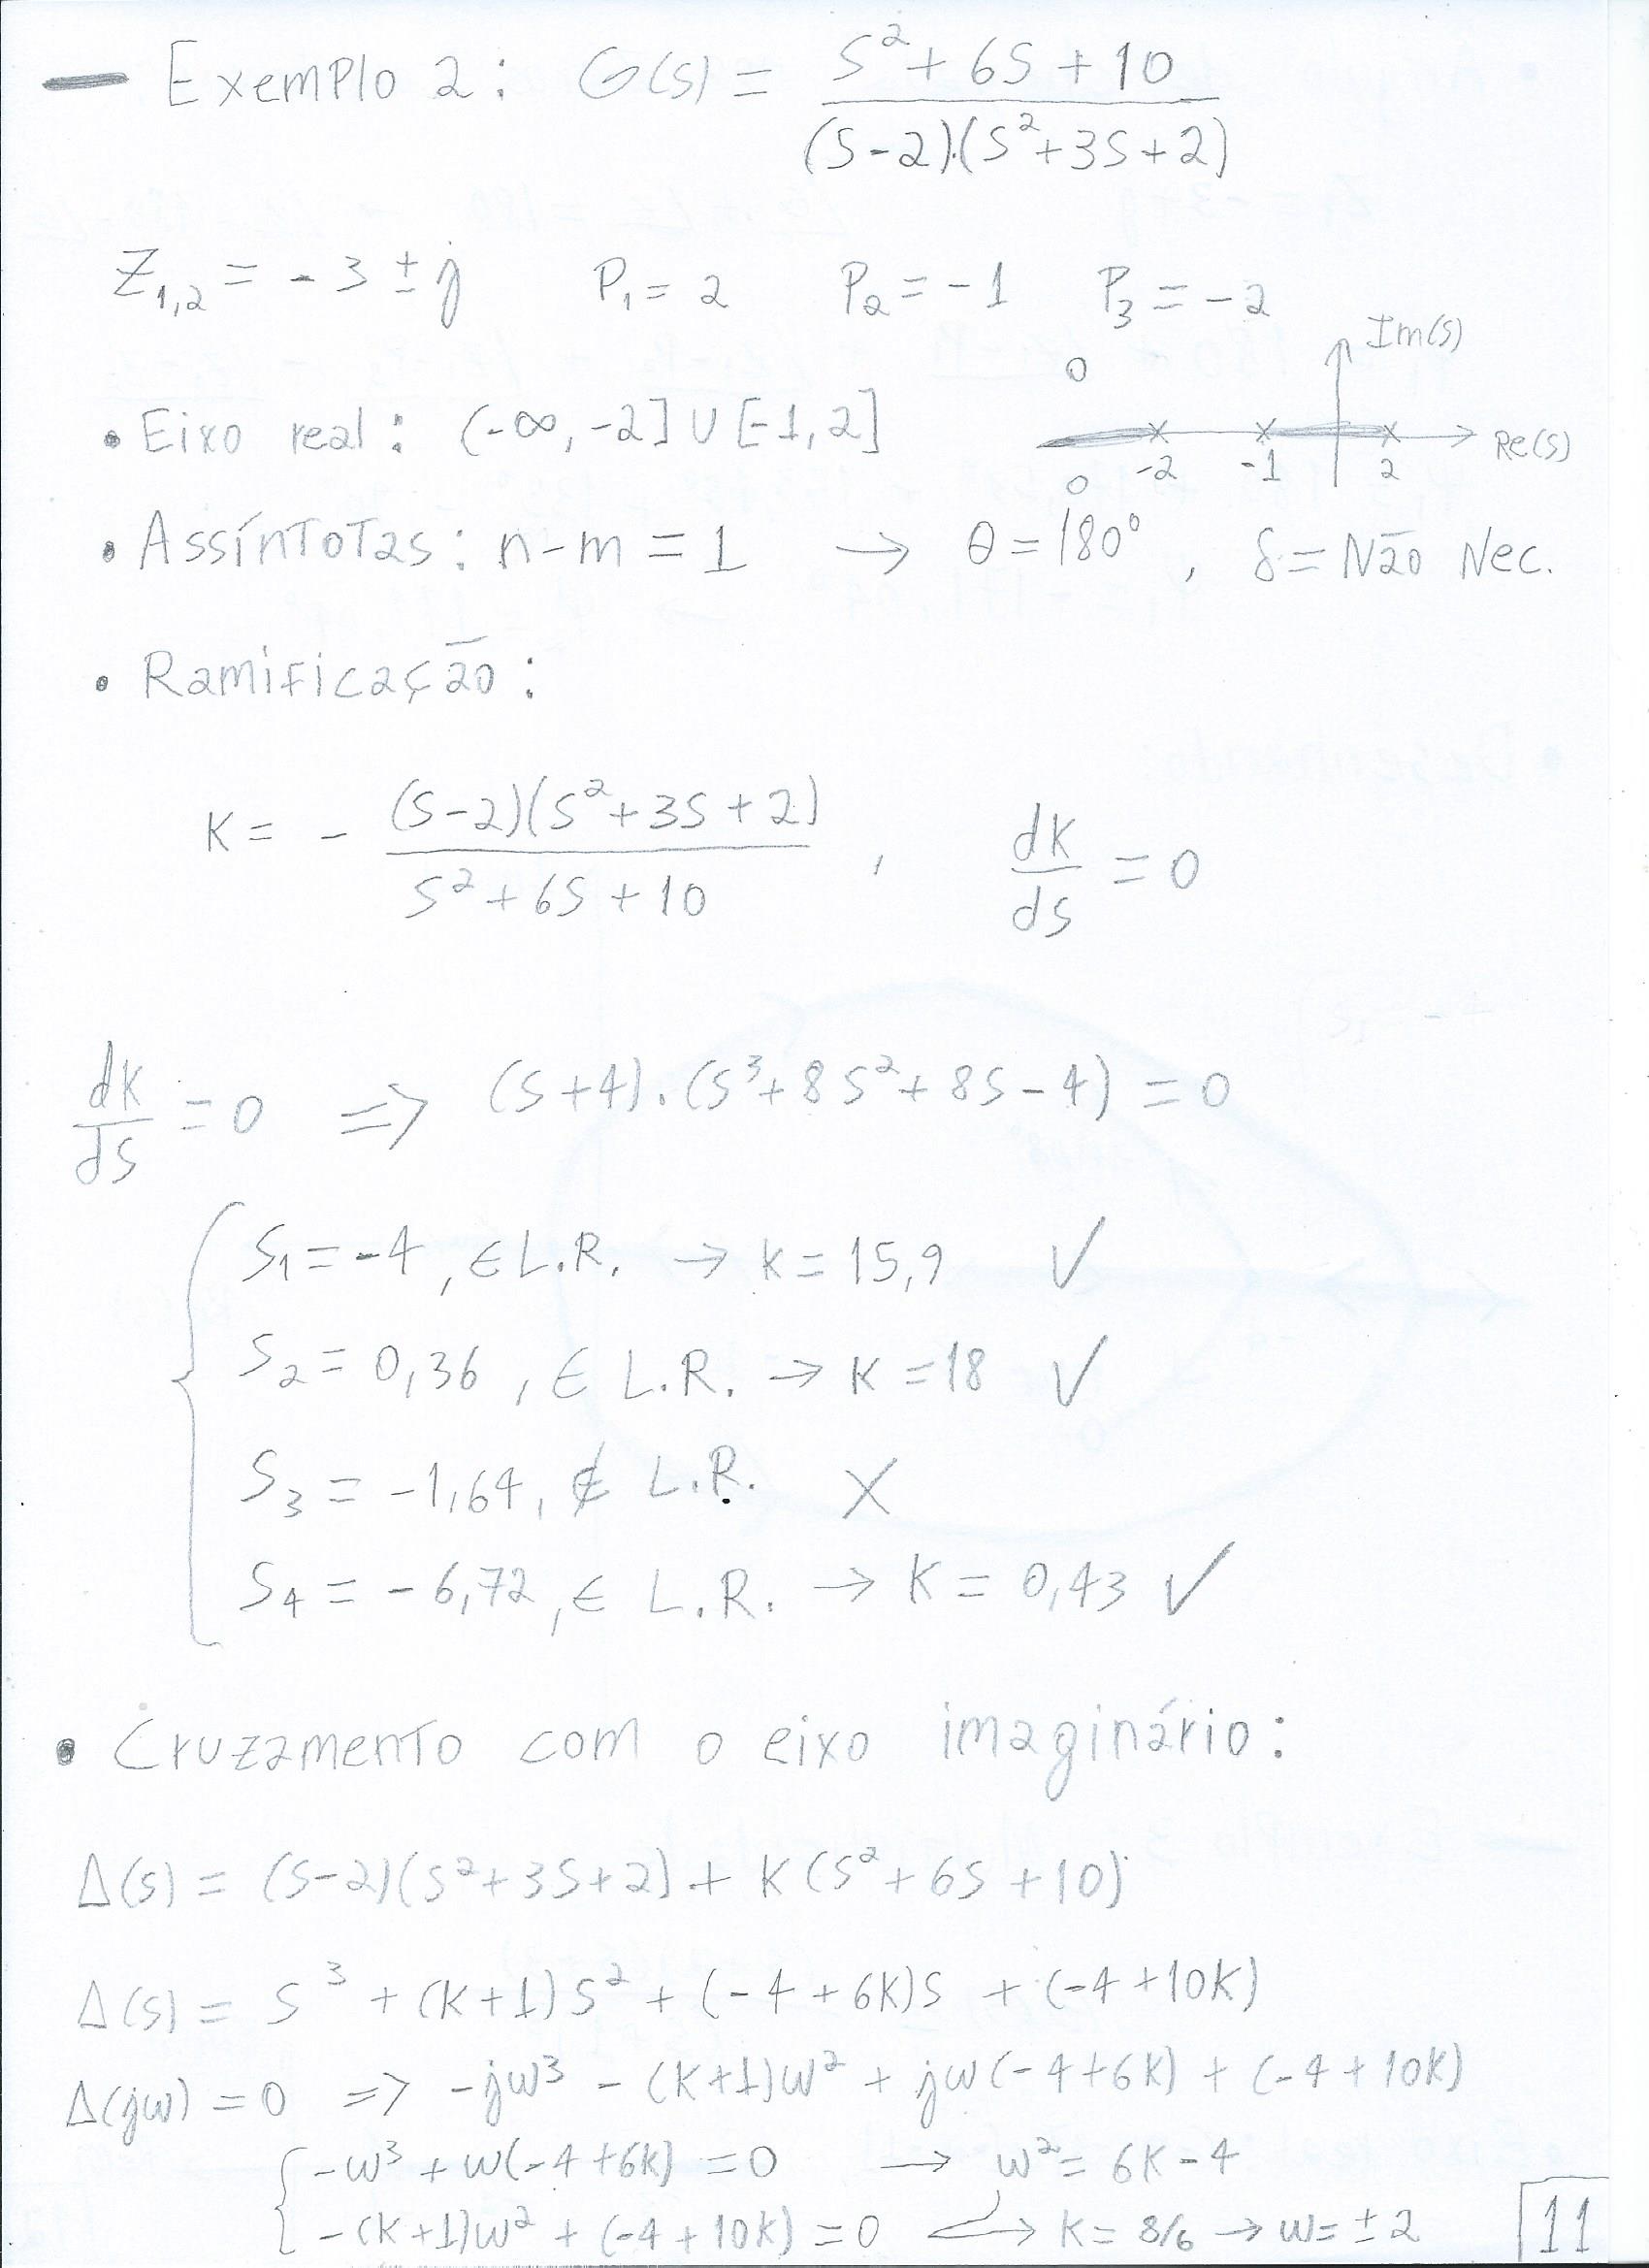 — Exemplo 2: G(s) = (s²+6s+10)/((s-2).(s²+3s+2))
Z₁,₂ = -3 ± j P₁ = 2 P₂ = -1 P₃ = -2
Im(s)
• Eixo real: (-∞, -2] ∪ [-1, 2]
Re(s)
-2 -1 2
• Assíntotas: n-m = 1 → θ = 180°, δ = Não Nec.
• Ramificação:
K = - (s-2)(s²+3s+2)/(s²+6s+10) , dK/ds = 0
dK/ds = 0 => (s+4).(s³+8s²+8s-4) = 0
S₁ = -4, ∈ L.R. → K = 15,9 ✓
S₂ = 0,36, ∈ L.R. → K = 18 ✓
S₃ = -1,64, ∉ L.R. X
S₄ = -6,72, ∈ L.R. → K = 0,43 ✓
• Cruzamento com o eixo imaginário:
Δ(s) = (s-2)(s²+3s+2) + K(s²+6s+10)
Δ(s) = s³ + (K+1)s² + (-4+6K)s + (-4+10K)
Δ(jw) = 0 => -jw³ - (K+1)w² + jw(-4+6K) + (-4+10K)
-w³ + w(-4+6K) = 0 → w² = 6K-4
-(K+1)w² + (-4+10K) = 0 → K = 8/6 → w = ±2
11